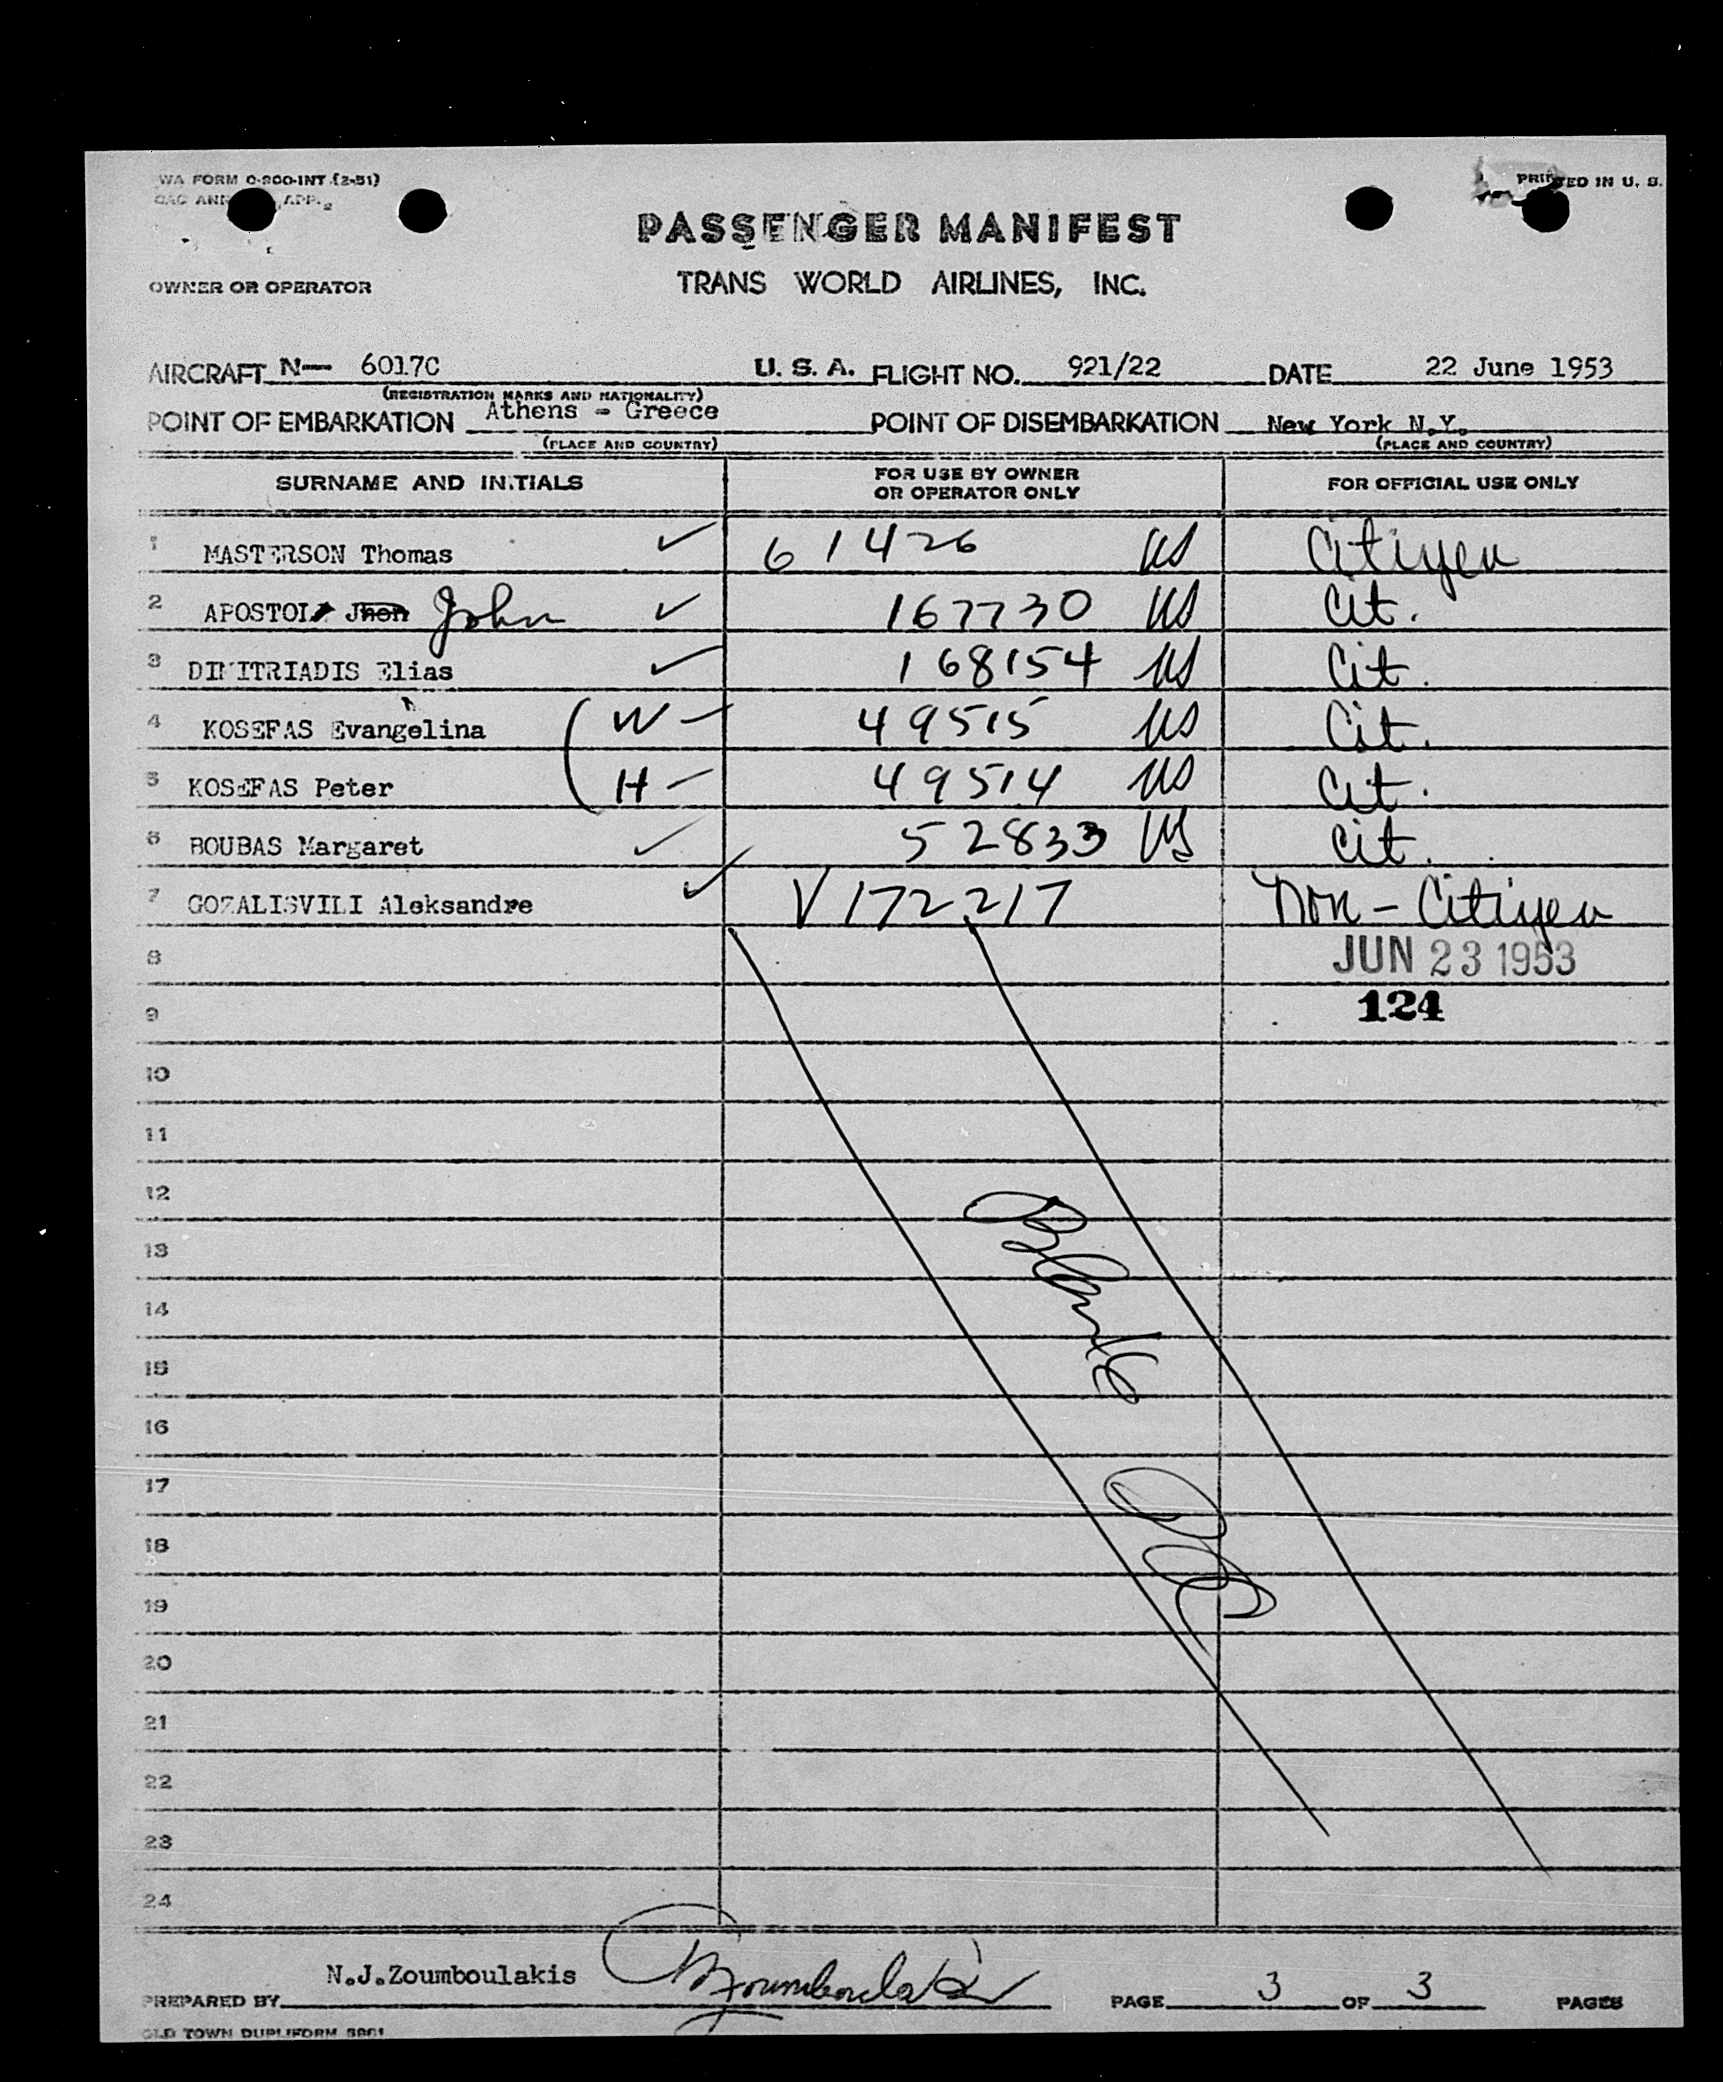 WA FORM O-800-INT (2-51)
PRINTED IN U. S.
PASSENGER MANIFEST
OWNER OR OPERATOR
TRANS WORLD AIRLINES, INC.
AIRCRAFT N— 6017C U. S. A. FLIGHT NO. 921/22 DATE 22 June 1953
(REGISTRATION MARKS AND NATIONALITY)
POINT OF EMBARKATION Athens - Greece POINT OF DISEMBARKATION New York N.Y.
(PLACE AND COUNTRY) (PLACE AND COUNTRY)
SURNAME AND INITIALS FOR USE BY OWNER OR OPERATOR ONLY FOR OFFICIAL USE ONLY
1 MASTERSON Thomas ✓ 61426 US Citizen
2 APOSTOL Jhon John ✓ 167730 US Cit.
3 DIMITRIADIS Elias ✓ 168154 US Cit.
4 KOSEFAS Evangelina (W — 49515 US Cit.
5 KOSEFAS Peter (H — 49514 US Cit.
6 BOUBAS Margaret ✓ 52833 US Cit.
7 GOZALISVILI Aleksandre ✓ V172217 Non-Citizen
8 JUN 23 1953
9 124
10
11
12
13
14
15
16
17
18
19
20
21
22
23
24
Blank
N.J.Zoumboulakis
PREPARED BY NJZoumboulakis PAGE 3 OF 3 PAGES
OLD TOWN DUPLIFORM